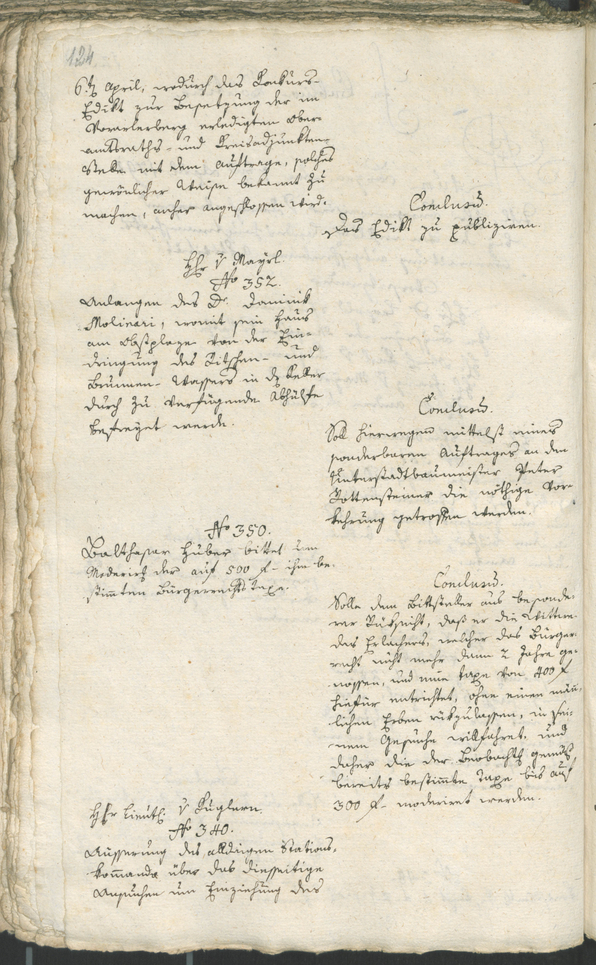 124
6t. April, wodurch das Konkurs-
Edikt zur Besetzung der im
Vorarlerberg erledigten Ober-
amtsraths- und Kreisadjunkten-
Stelle mit dem Auftrage, solches
gewönlicher Weise bekannt zu
machen, anher angeschlossen wird.
Conclusū.
Das Edikt zu publiziren.
H. v Mayrl.
No 352.
Anlangen des D. Dominik
Molinari, womit sein Haus
am Obstplaze von der Ein-
dringung des Ritschen- und
Brunnen-Wassers in d Keller
durch zu verfügende Abhülfe
befreyet werde.
Conclusū.
Soll hierwegen mittelst eines
sonderbaren Auftrages an den
Unterstadtbaumeister Peter
Rottensteiner die nöthige Vor-
kehrung getroffen werden.
No 350.
Balthasar Huber bittet um
Moderirg der auf 500 f ihm be-
stimmten Bürgerrechts Taxe.
Conclusū.
Solle dem Bittsteller aus besonde-
rer Rüksicht, daß er die Wittwe
des Erlachers, welcher das Bürger-
recht nicht mehr dann 2 Jahre ge-
nossen, und eine Taxe von 400 f
hiefür entrichtet, ohne einen män-
lichen Erben rükzulassen, in sei-
nem Gesuche willfahret, und
daher die der Beobachtg gemäß
bereits bestimmte Taxe bis auf
300 f moderiret werden.
H. Lieut. v Kuglern.
No 340.
Äusserung des alldigen Stations-
kom̄ando über das diesseitige
Ansuchen um Einziehung des